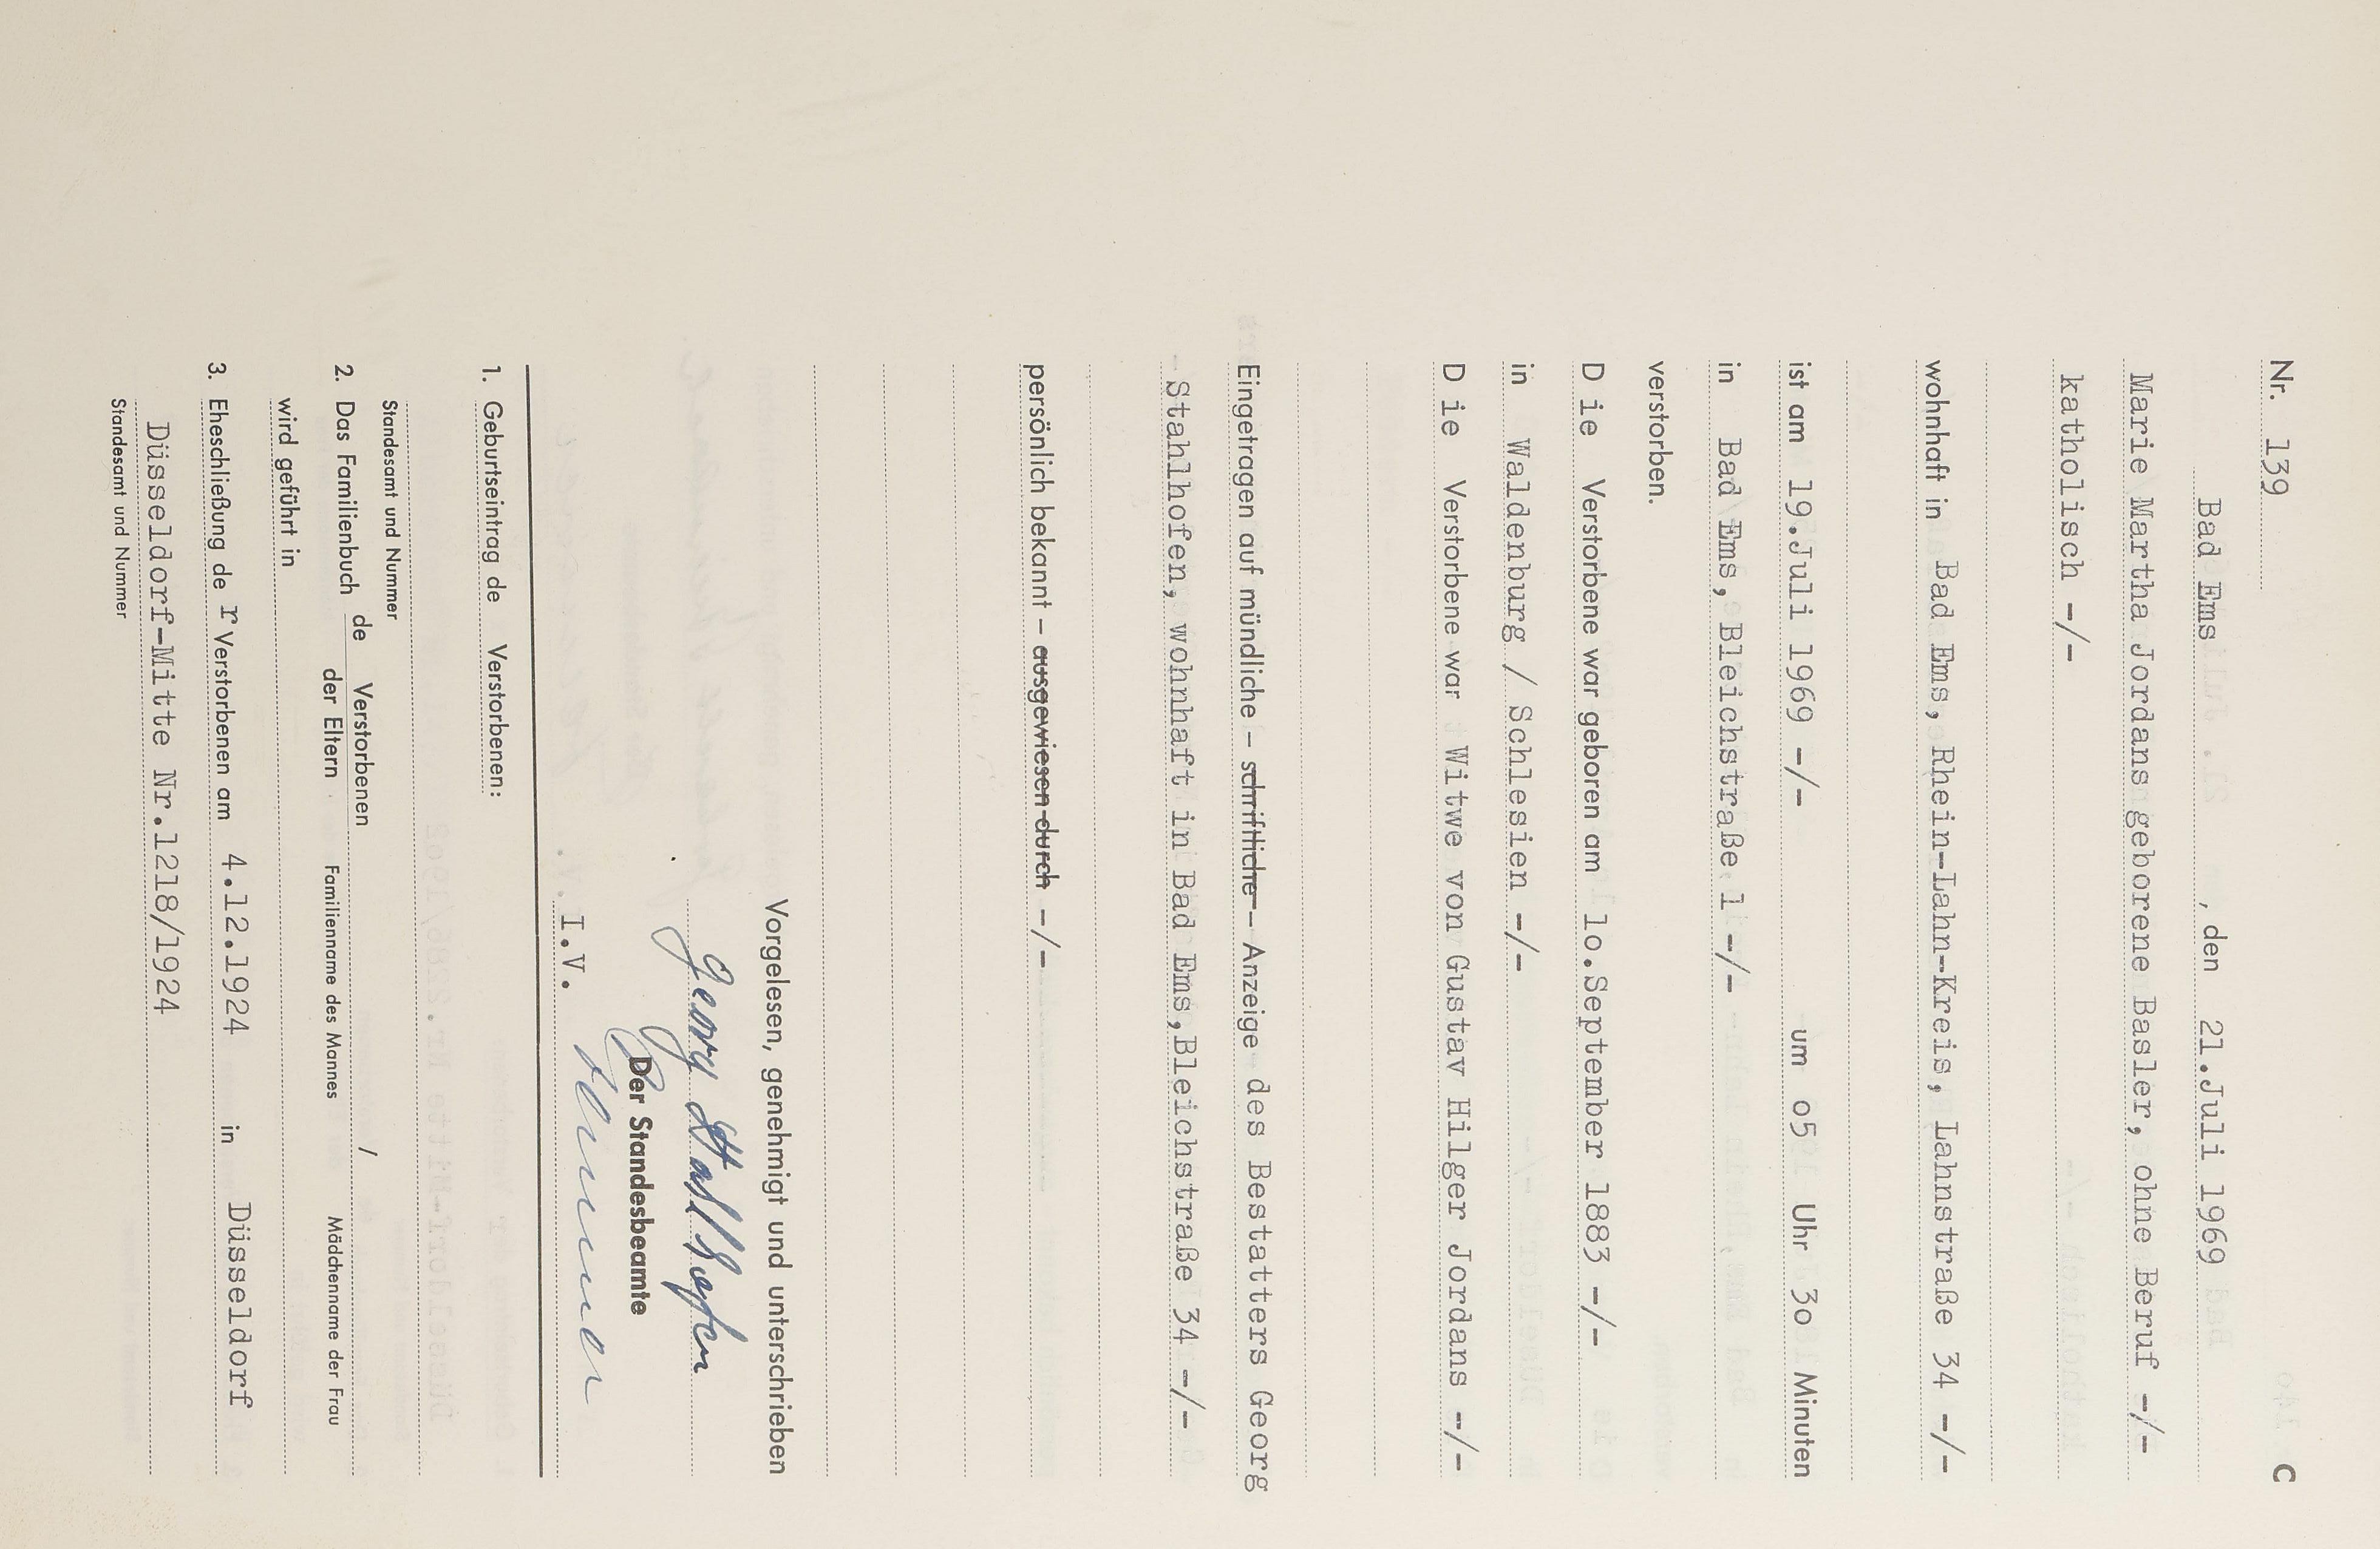 Nr. 139 C
Bad Ems , den 21.Juli 1969
Marie Martha Jordans geborene Basler, ohne Beruf -/-
katholisch -/-
wohnhaft in Bad Ems, Rhein-Lahn-Kreis, Lahnstraße 34 -/-
ist am 19.Juli 1969 -/- um o5 Uhr 3o Minuten
in Bad Ems, Bleichstraße 1 -/-
verstorben.
D ie Verstorbene war geboren am lo.September 1883 -/-
in Waldenburg / Schlesien -/-
D ie Verstorbene war Witwe von Gustav Hilger Jordans -/-
Eingetragen auf mündliche – schriftliche – Anzeige des Bestatters Georg
Stahlhofen, wohnhaft in Bad Ems,Bleichstraße 34 -/-
persönlich bekannt – ausgewiesen durch -/-
Vorgelesen, genehmigt und unterschrieben
Georg Stahlhofen
Der Standesbeamte
I.V.
1. Geburtseintrag de Verstorbenen:
Standesamt und Nummer
2. Das Familienbuch de Verstorbenen /
der Eltern Familienname des Mannes Mädchenname der Frau
wird geführt in
3. Eheschließung de r Verstorbenen am 4.12.1924 in Düsseldorf
Düsseldorf-Mitte Nr.1218/1924
Standesamt und Nummer